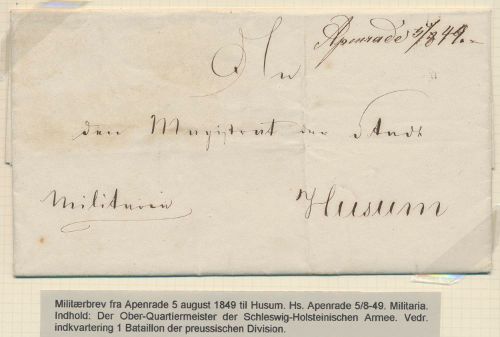 Apenrade 5/8 49.
An
den Magistrat der Stadt
Militaria
Husum
Militærbrev fra Apenrade 5 august 1849 til Husum. Hs. Apenrade 5/8-49. Militaria.
Indhold: Der Ober-Quartiermeister der Schleswig-Holsteinischen Armee. Vedr.
indkvartering 1 Bataillon der preussischen Division.